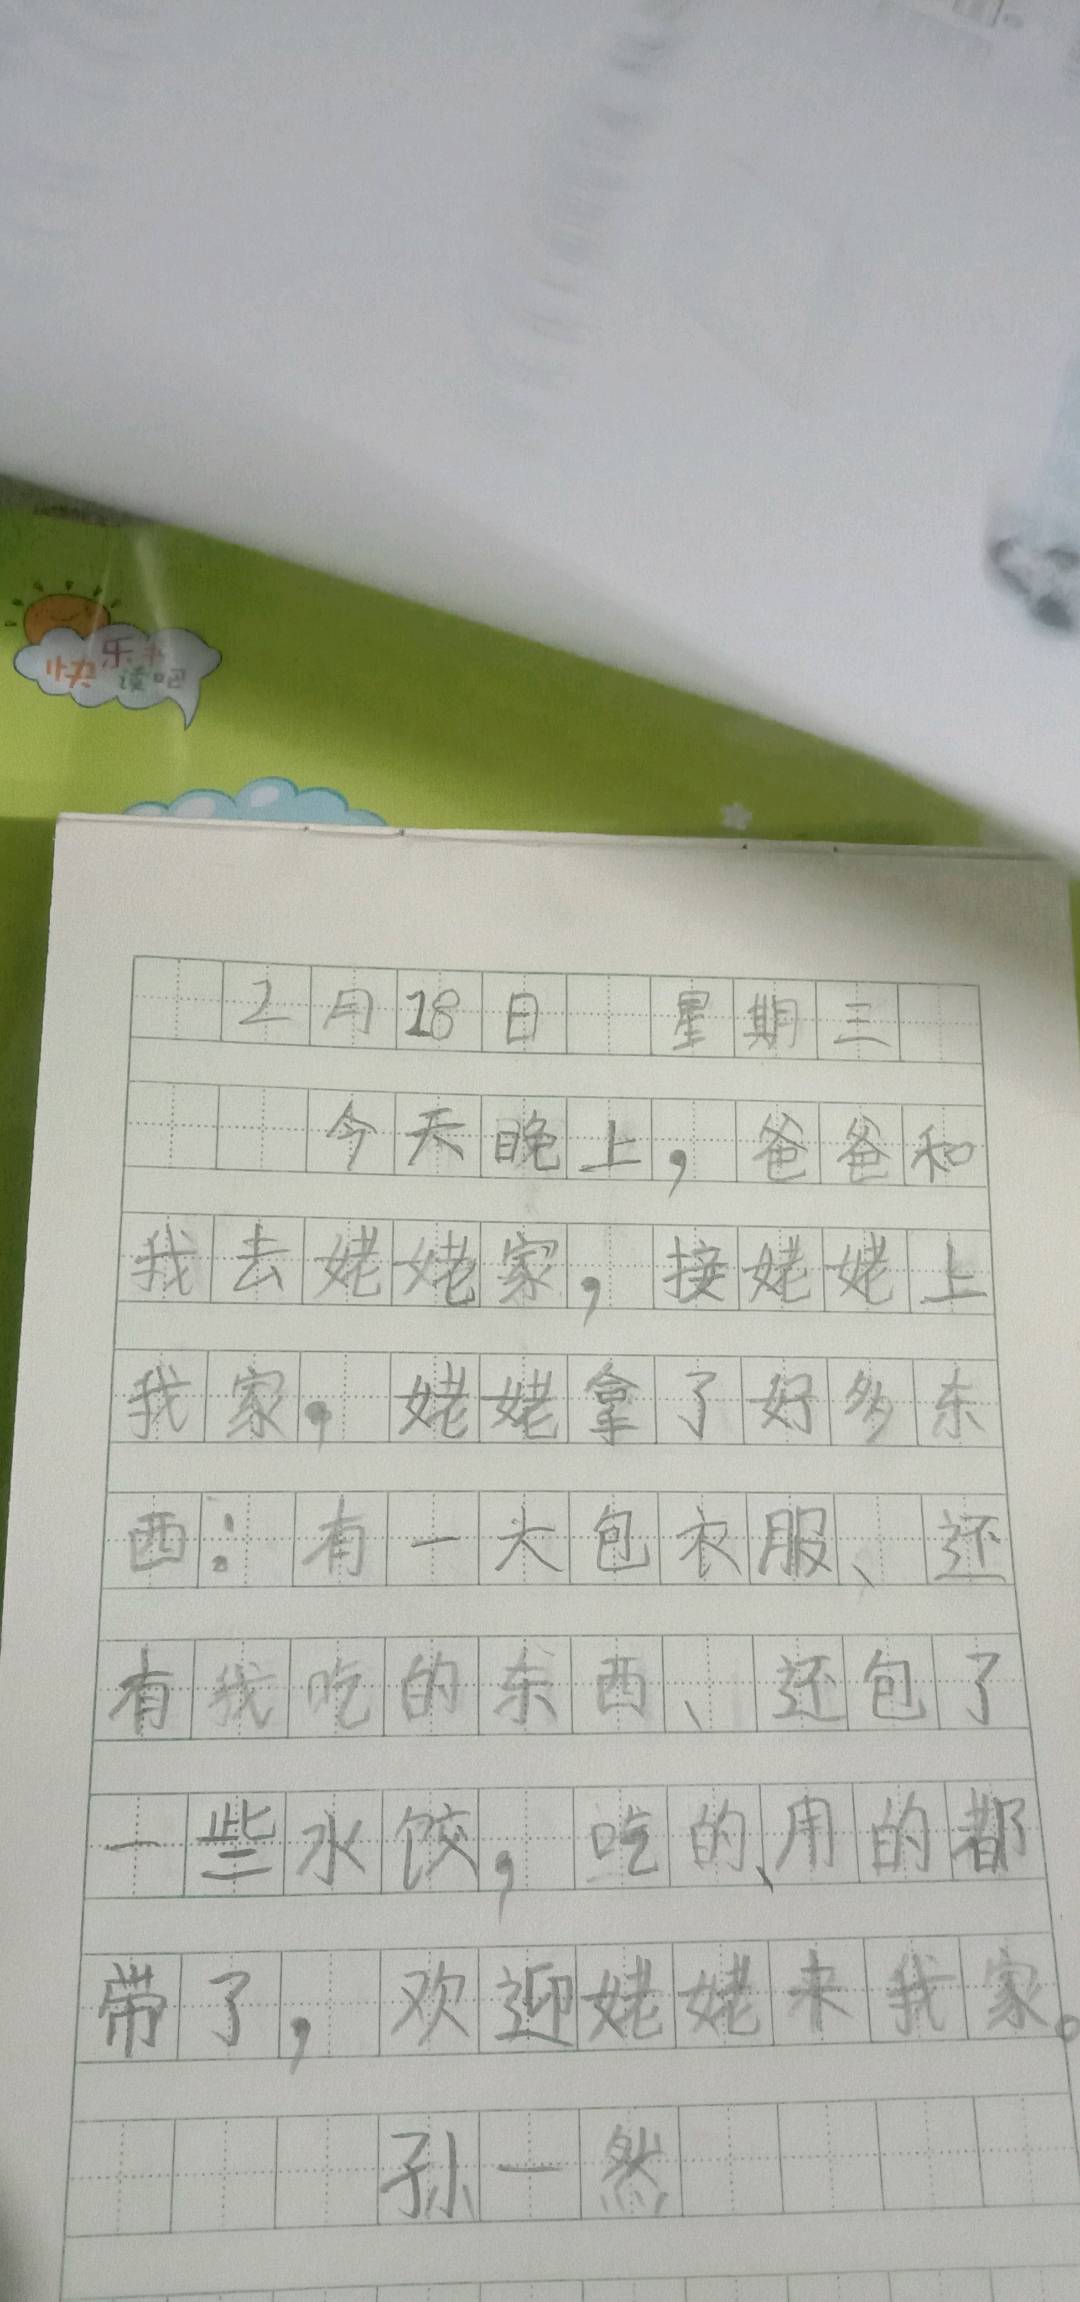 快乐书
读吧
2月18日 星期三
今天晚上,爸爸和
我去姥姥家,接姥姥上
我家,姥姥拿了好多东
西:有一大包衣服、还
有我吃的东西、还包了
一些水饺,吃的、用的都
带了,欢迎姥姥来我家。
孙一然